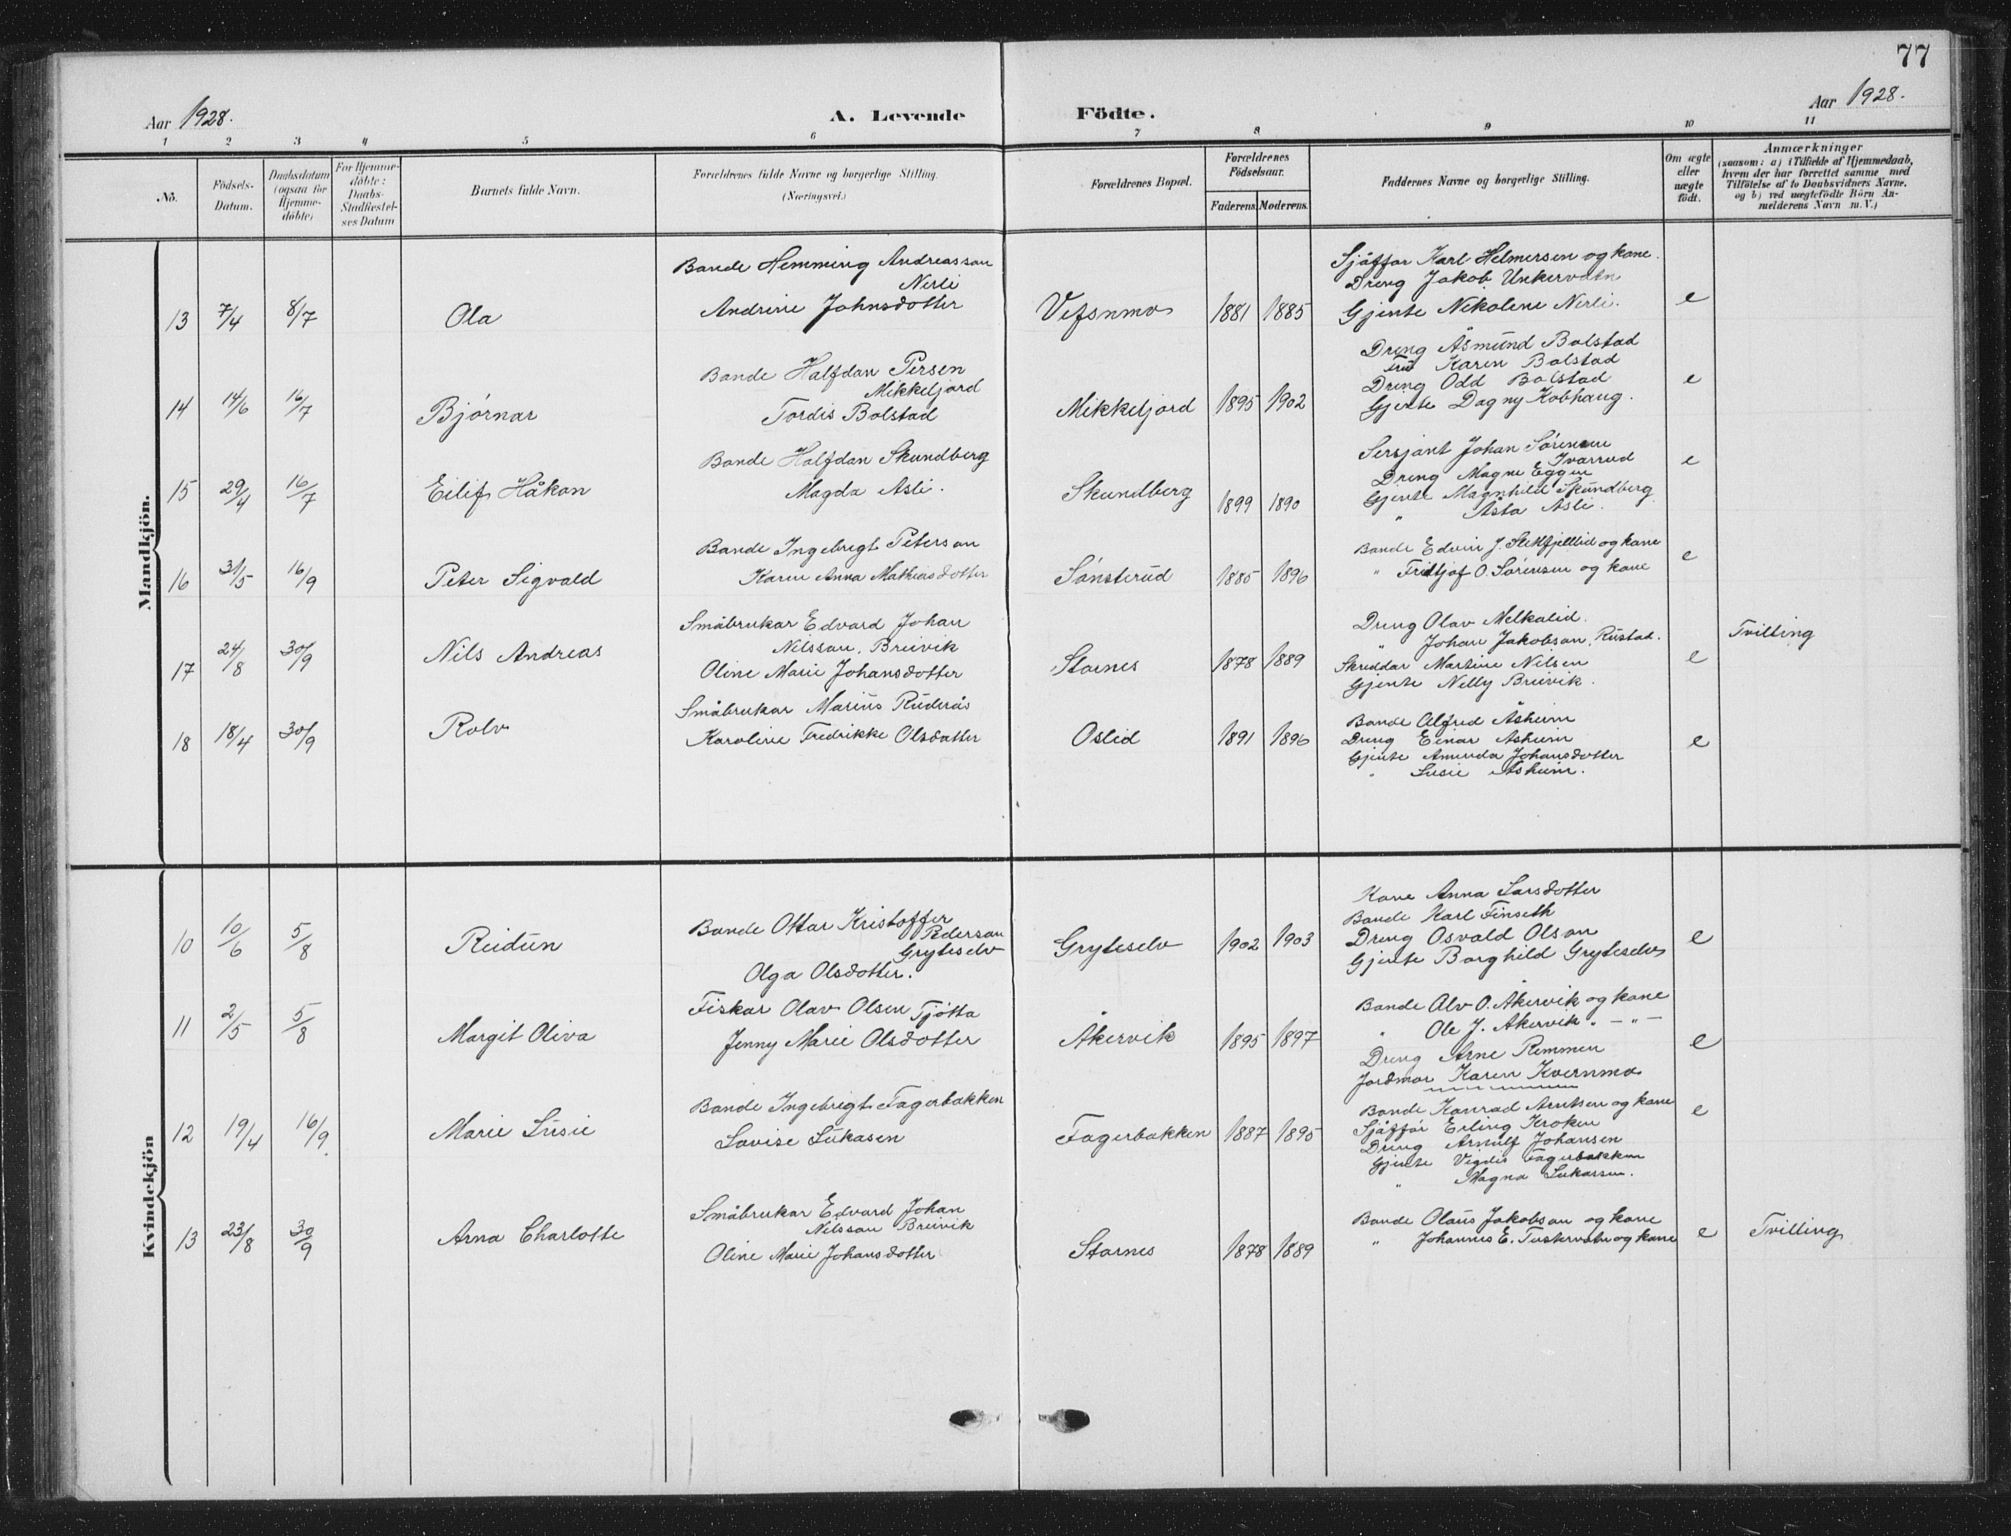 77
Aar 1928.
A. Levende Födte.
Aar 1928.
1 2 3 4 5 6 7 8 9 10 11
No.
Födsels-Datum.
Daabsdatum (ogsaa for Hjemmedöbte)
For Hjemmedöbte: Daabs-Stadfæstelses Datum
Barnets fulde Navn.
Forældrenes fulde Navne og borgerlige Stilling.
(Næringsvei.)
Forældrenes Bopæl.
Forældrenes Födselsaar.
Faderens. Moderens.
Faddernes Navne og borgerlige Stilling.
Om ægte eller uægte födt.
Anmærkninger
(saasom: a) i Tilfælde af Hjemmedaab,
hvem der har forrettet samme med
Tilföielse af to Daabsvidners Navne.
og b) ved uægtefödte Börn An-
melderens Navn m. V.)
Mandkjön.
13 7/4 8/7 Ola
Bonde Hemming Andreasson
Nerli
Andrine Johnsdotter
Vefsnmo 1881 1885
Sjåffør Karl Helmersen og kone.
Dreng Jakob Unkervatn
Gjente Nikoline Nerli.
e
14 14/6 16/7 Bjørnar
Bonde Halfdan Persen
Mikkeljord
Tordis Bolstad
Mikkeljord 1895 1902
Dreng Åsmund Bolstad
Fru Karen Bolstad
Dreng Odd Bolstad
Gjente Dagny Kobhaug.
e
15 29/4 16/7 Eilif Håkon
Bonde Halfdan Skundberg
Magda Asli.
Skundberg 1899 1890
Sersjant Johan Sørensen
Ivarrud
Dreng Magne Eggen
Gjente Magnhild Skundberg
" Åsta Asli.
e
16 31/5 16/9 Peter Sigvald
Bonde Ingebregt Peterson
Karen Anna Mathiasdotter
Sønsterud 1885 1896
Bonde Edvin J. Slettfjellid og kone
" Fridtjof O. Sørensen og kone
e
17 24/8 30/9 Nils Andreas
Småbrukar Edvard Johan
Nilsson. Breivik
Oline Marie Johansdotter
Stornes 1878 1889
Dreng Olav Melkalid.
" Johan Jakobson. Rustad.
Skreddar Martine Nilsen
Gjente Nelly Breivik.
e Tvilling
18 18/4 30/9 Rolv
Småbrukar Marius Ruderås
Karoline Fredrikke Olsdotter
Oslid 1891 1896
Bonde Alfred Åsheim
Dreng Einar Åsheim
Gjente Amanda Johansdotter
" Susie Åsheim.
e
Kvindekjön
10 10/6 5/8 Reidun
Bonde Ottar Kristoffer
Pederson
Gryteselv
Olga Olsdotter.
Gryteselv 1902 1903
Kone Anna Larsdotter
Bonde Karl Finseth
Dreng Osvald Olson
Gjente Borghild Gryteselv
e
11 2/5 5/8 Margit Oliva
Fiskar Olav Olsen Tjøtta
Jenny Marie Olsdotter
Åkervik 1895 1897
Bonde Alv O. Åkervik og kone
" Ole J. Åkervik " - " -
Dreng Arne Remmen
Jordmor Karen Kvernmo
e
12 19/4 16/9. Marie Susie
Bonde Ingebregt Fagerbakken
Lovise Lukasen
Fagerbakken 1887 1895
Bonde Konrad Arntsen og kone
Sjåffør Erling Kroken
Dreng Arnulf Johansen
Gjente Vigdis Fagerbakken
" Magna Lukassen.
e
13 23/8 30/9 Arna Charlotte
Småbrukar Edvard Johan
Nilsson Breivik
Oline Marie Johansdotter
Stornes 1878 1889
Bonde Olaus Jakobson og kone
" Johannes E. Tustervatn og kone
e Tvilling